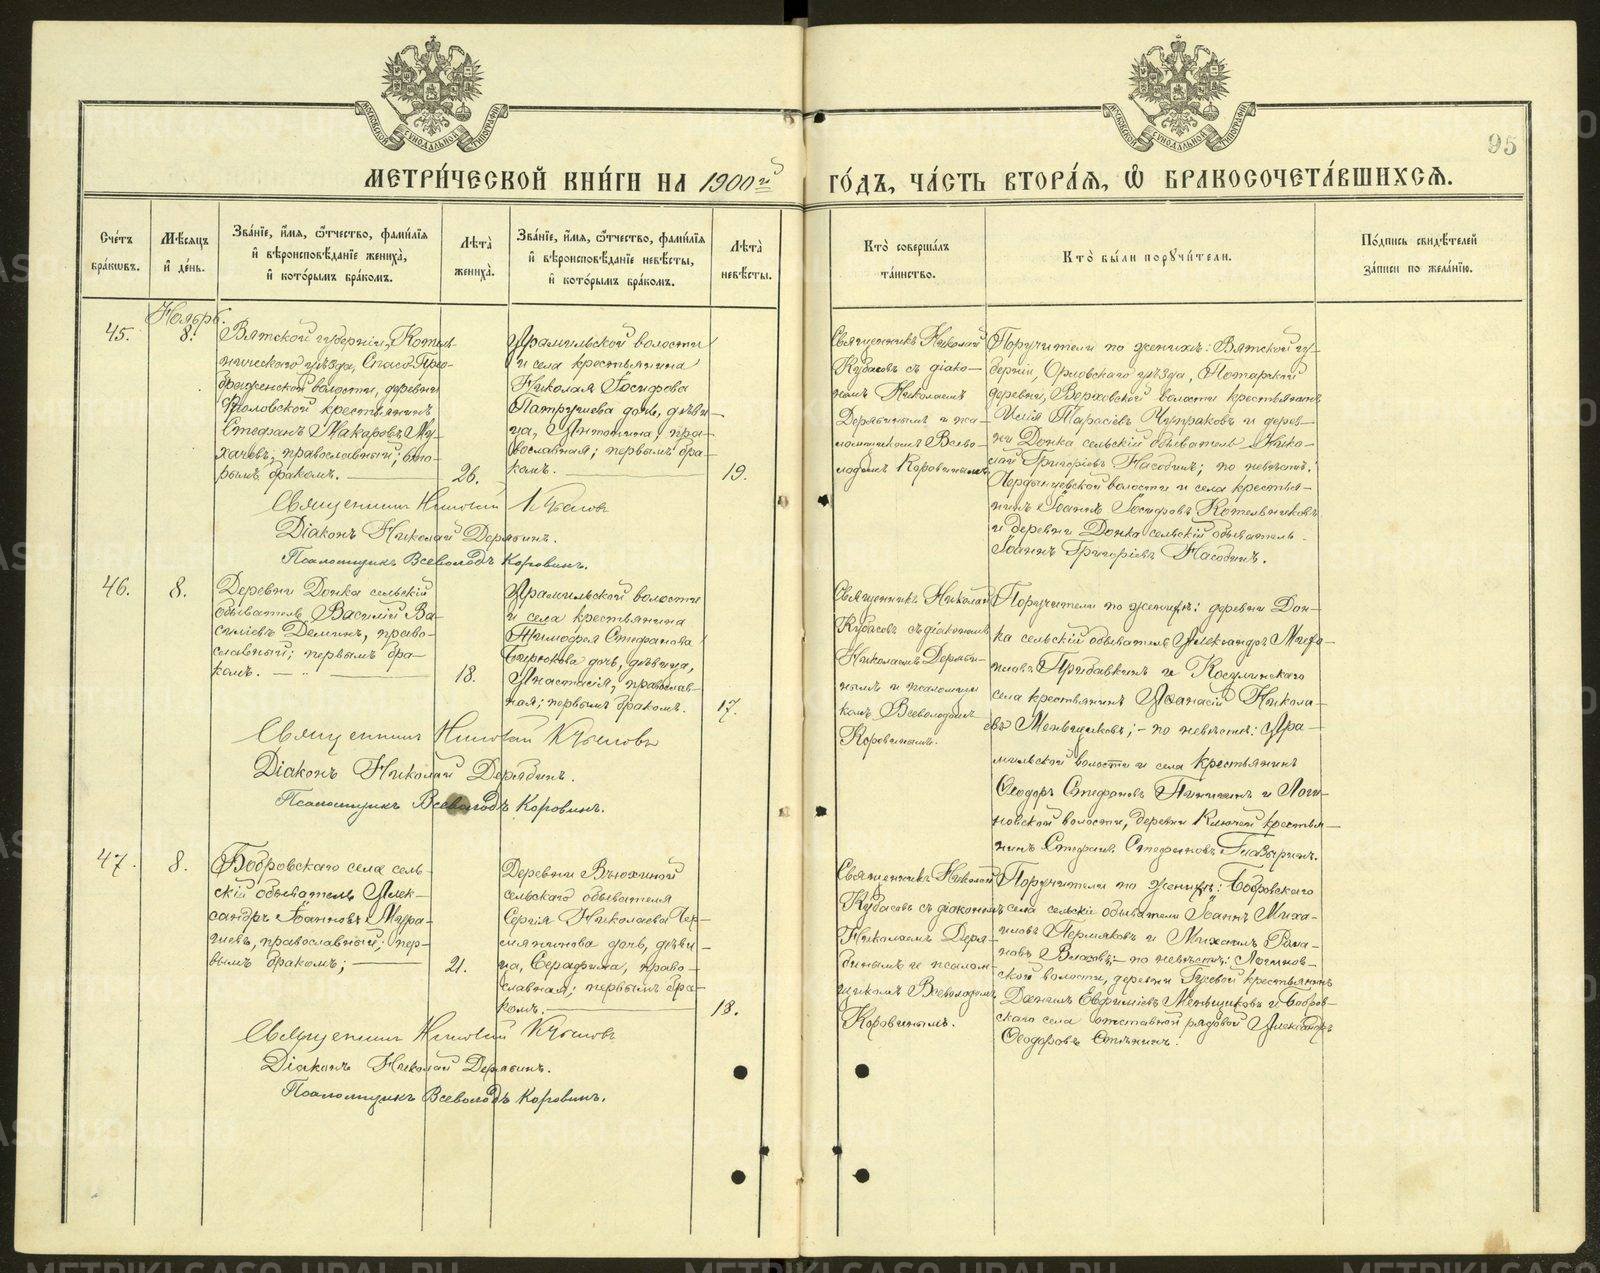 МОСКОВСКОЙ СѴНОДАЛЬНОЙ ТИПОГРАФІИ
МОСКОВСКОЙ СѴНОДАЛЬНОЙ ТИПОГРАФІИ
95
МЕТРИ́ЧЕСКОЙ КНИ́ГИ НА 1900й ГО́ДЪ, ЧА́СТЬ ВТОРА́Ѧ, Ѡ БРАКОСОЧЕТА́ВШИХСѦ.
Сче́тъ бра́кѡвъ.
Мѣ́сѧцъ и҆ де́нь.
Зва́нїе, и҆́мѧ, ѻ҆́тчество, фами́лїѧ и҆ вѣроисповѣ́данїе жениха̀, и҆ кото́рымъ бра́комъ.
Лѣ́та жениха̀.
Зва́нїе, и҆́мѧ, ѻ҆́тчество, фами́лїѧ и҆ вѣроисповѣ́данїе невѣ́сты, и҆ кото́рымъ бра́комъ.
Лѣ́та невѣ́сты.
Кто̀ соверша́лъ та́инство.
Кто̀ бы́ли порꙋчи́тели.
По́дпись свидѣ́телей за́писи по жела́нїю.
Ноябрь.
45.
8.
Вятской губерніи, Котель-
ническаго уѣзда, Спасо-Прео-
браженской волости, деревни
крестьянинъ
Стефанъ Макаровъ Му-
хачевъ, православный; вто-
рымъ бракомъ.
26.
Арамильской волости
и села крестьянина
Николая Іосифова
Патрушева дочь, дѣви-
ца, Антонина, пра-
вославная; первымъ бра-
комъ.
19.
Священникъ Николай
Кубасовъ съ діако-
номъ Николаемъ
Дерябинымъ и пса-
ломщикомъ Всево-
лодомъ Коровинымъ.
Поручители по женихѣ: Вятской гу-
берніи, Орловскаго уѣзда,
деревни, Верховской волости крестьянинъ
Илія Тарасіевъ Чупраковъ и дерев-
ни Донка сельскій обыватель Нико-
лай Григоріевъ Насобинъ; по невѣстѣ:
волости и села крестья-
нинъ Іоаннъ Іосифовъ Котельниковъ
и деревни Донка сельскій обыватель
Іоаннъ Григоріевъ Насобинъ.
Священникъ Николай Кубасовъ
Діаконъ Николай Дерябинъ.
Псаломщикъ Всеволодъ Коровинъ.
46.
8.
Деревни Донка сельскій
обыватель Василій Ва-
силіевъ Деминъ, право-
славный; первымъ бра-
комъ.
18.
Арамильской волости
и села крестьянина
Тимофея Стефанова
Бирюкова дочь, дѣвица,
Анастасія, православ-
ная; первымъ бракомъ.
17.
Священникъ Николай
Кубасовъ съ діакономъ
Николаемъ Деряби-
нымъ и псаломщи-
комъ Всеволодомъ
Коровинымъ.
Поручители по женихѣ: деревни Дон-
ка сельскій обыватель Александръ Миха-
иловъ Прибавкинъ и Косулинскаго
села крестьянинъ Аѳанасій Никола-
евъ Меньщиковъ; - по невѣстѣ: Ара-
мильской волости и села крестьянинъ
Ѳеодоръ Стефановъ и Логи-
новской волости, деревни Ключей крестья-
нинъ Стефанъ Стефановъ Глазыринъ.
Священникъ Николай Кубасовъ
Діаконъ Николай Дерябинъ.
Псаломщикъ Всеволодъ Коровинъ.
47.
8.
Бобровскаго села сель-
скій обыватель Алек-
сандръ Іоанновъ Мура-
шевъ, православный; пер-
вымъ бракомъ;
21.
Деревни Вьюхиной
сельскаго обывателя
Сергія Николаева Пер-
мянинова дочь, дѣви-
ца, Серафима, право-
славная; первымъ бра-
комъ.
18.
Священникъ Николай
Кубасовъ съ діакономъ
Николаемъ Деря-
бинымъ и псалом-
щикомъ Всеволодомъ
Коровинымъ.
Поручители по женихѣ: Бобровскаго
села сельскіе обыватели Іоаннъ Миха-
иловъ Пермяковъ и Михаилъ Рома-
новъ Власовъ; - по невѣстѣ: Логинов-
ской волости, деревни Гусевой крестьянинъ
Даніилъ Евфиміевъ Меньщиковъ и Бобров-
скаго села отставной рядовой Александръ
Ѳеодоровъ
Священникъ Николай Кубасовъ
Діаконъ Николай Дерябинъ.
Псаломщикъ Всеволодъ Коровинъ.
METRIKI.GASO-URAL.RU